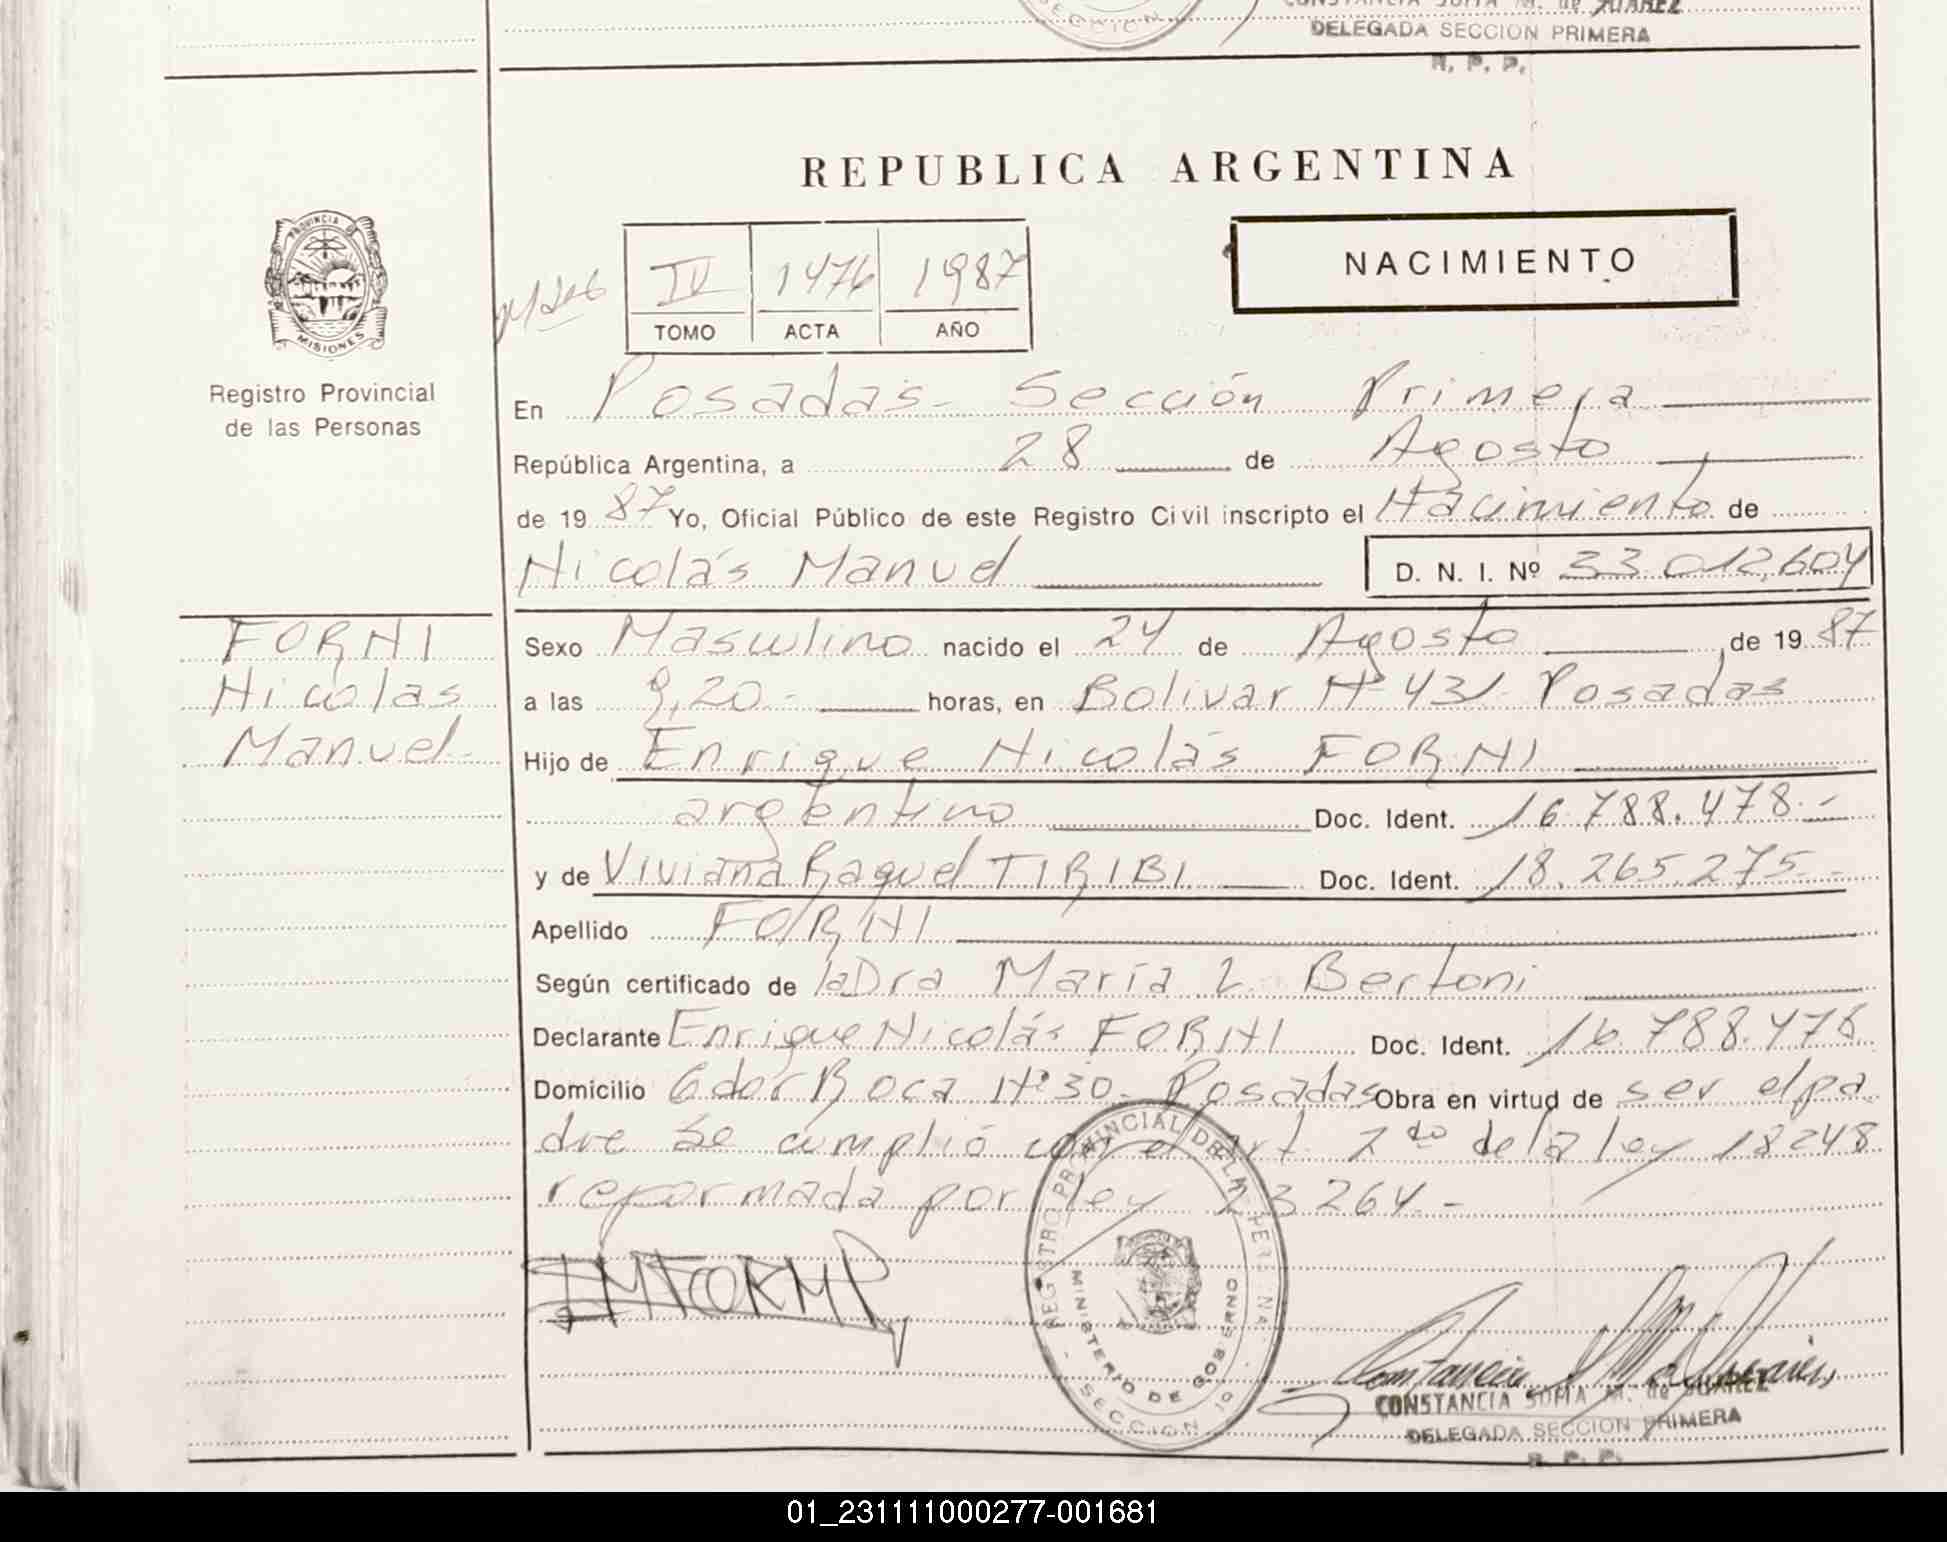 CONSTANCIA SOFIA M. de JUAREZ
DELEGADA SECCION PRIMERA
R. P. P.
SECCION
REPUBLICA ARGENTINA
NACIMIENTO
IV 1476 1987
TOMO ACTA AÑO
PROVINCIA DE
MISIONES
Registro Provincial
de las Personas
En Posadas - Sección Primera
República Argentina, a 28 de Agosto
de 19 87 Yo, Oficial Público de este Registro Civil inscripto el Nacimiento de
Nicolás Manuel D. N. I. Nº 33.012.604
FORNI
Nicolas
Manuel-
Sexo Masculino nacido el 24 de Agosto, de 19 87
a las 9,20.- horas, en Bolivar Nº 431 Posadas
Hijo de Enrique Nicolás FORNI
argentino Doc. Ident. 16.788.478.-
y de Viviana Raquel TIRIBI Doc. Ident. 18.265.275.-
Apellido FORNI
Según certificado de la Dra María L. Bertoni
Declarante Enrique Nicolás FORNI Doc. Ident. 16.788.478
Domicilio Gdor Roca Nº 30- Posadas Obra en virtud de ser el pa
dre Se cumplió con el art. 2do de la ley 18248
reformada por ley 23264.-
REGISTRO PROVINCIAL DE LAS PERSONAS
MINISTERIO DE GOBIERNO
- SECCION 1º -
CONSTANCIA SOFIA M. de JUAREZ
DELEGADA SECCION PRIMERA
R. P. P.
01_231111000277-001681